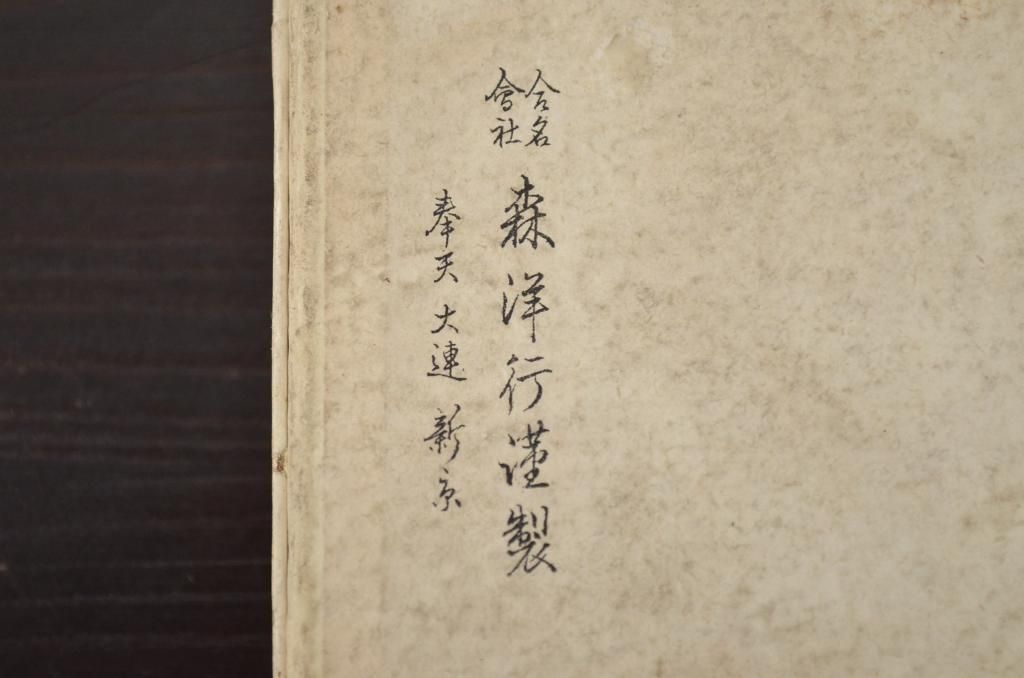 合名
會社
森洋行謹製
奉天 大連 新京